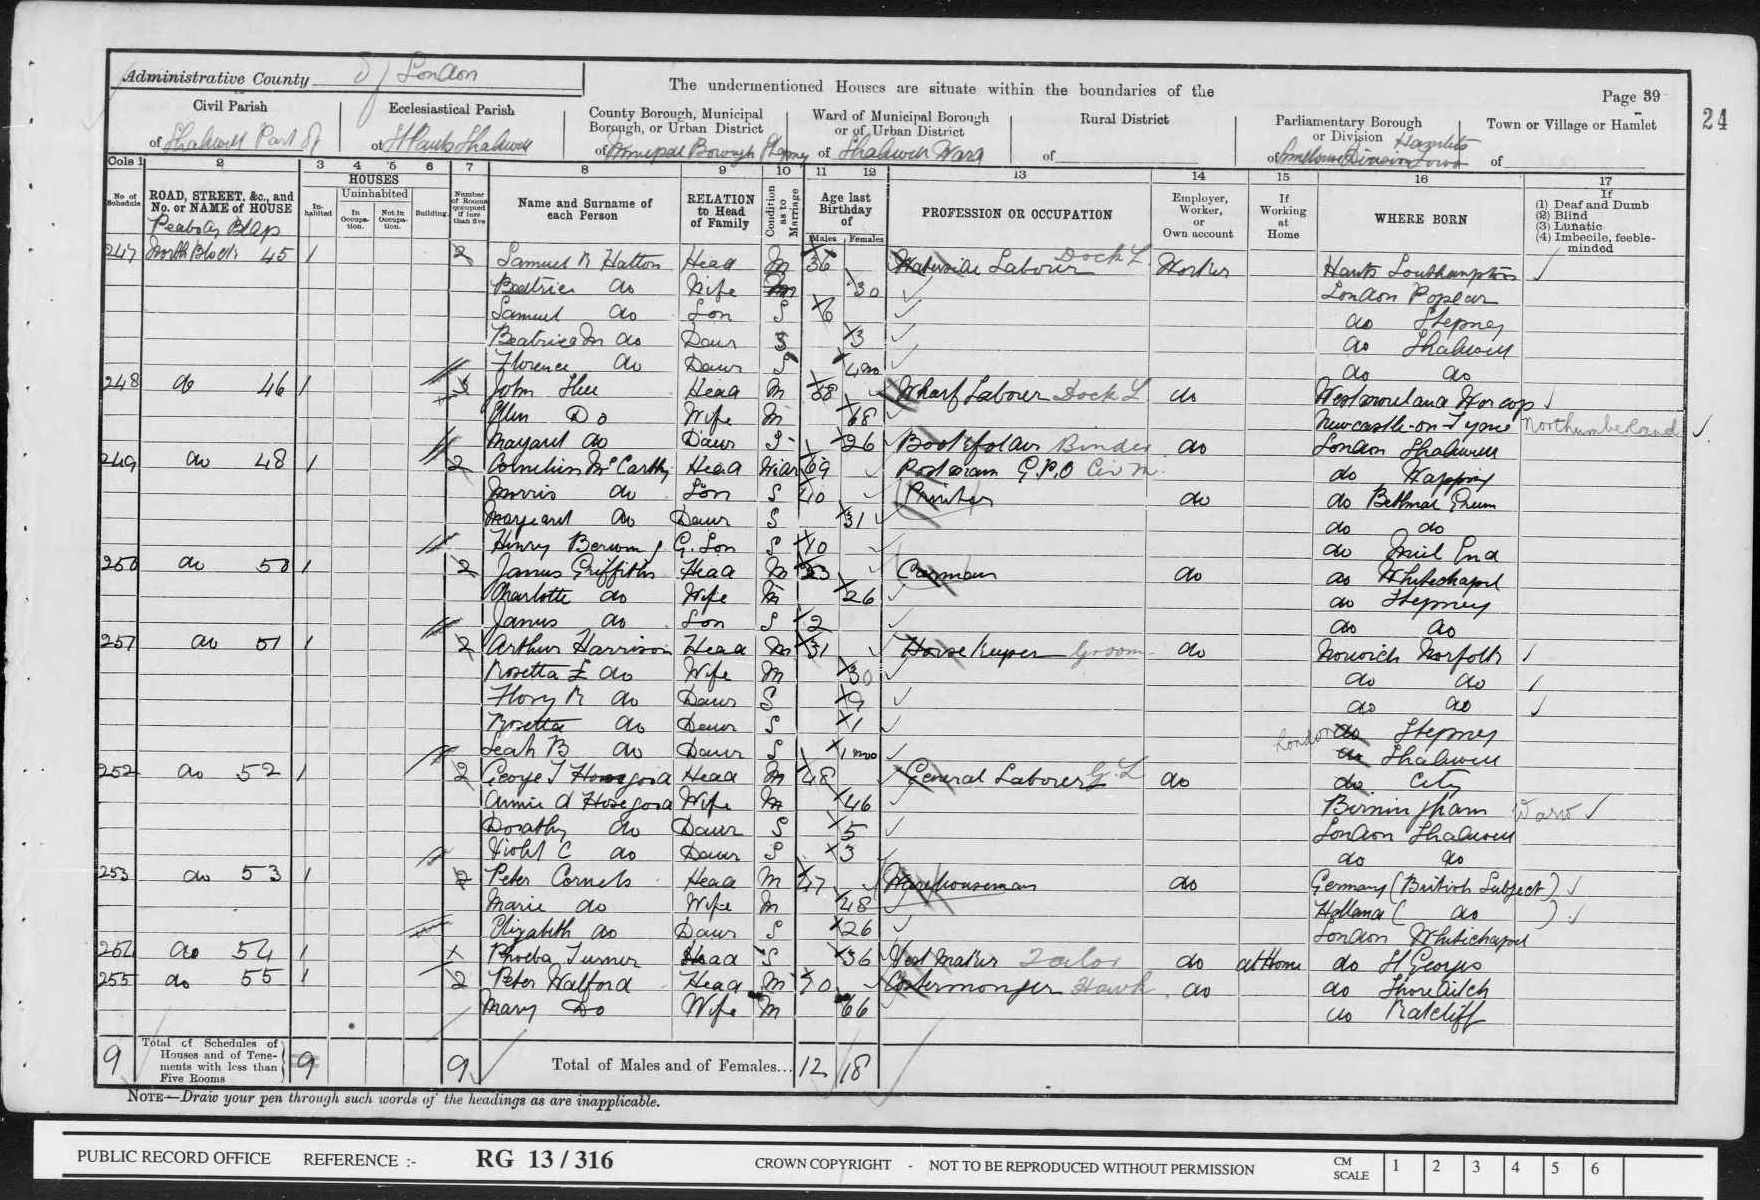 Administrative County of London
The undermentioned Houses are situate within the boundaries of the
Page 39
24
Civil Parish
of Shadwell Part of
Ecclesiastical Parish
of St Pauls Shadwell
County Borough, Municipal Borough, or Urban District
of Municipal Borough Stepney
Ward of Municipal Borough or of Urban District
of Shadwell Ward
Rural District
of
Parliamentary Borough or Division
of Division Tower Hamlets
Town or Village or Hamlet
of
Cols 1 2 3 4 5 6 7 8 9 10 11 12 13 14 15 16 17
No. of Schedule
ROAD, STREET, &c., and No. or NAME of HOUSE
HOUSES
Inhabited
Uninhabited
In Occupation.
Not in Occupation.
Building.
Number of Rooms occupied if less than five
Name and Surname of each Person
RELATION to Head of Family
Condition as to Marriage
Age last Birthday of
Males Females
PROFESSION OR OCCUPATION
Employer, Worker, or Own account
If Working at Home
WHERE BORN
If
(1) Deaf and Dumb
(2) Blind
(3) Lunatic
(4) Imbecile, feeble-minded
Peabody Bldgs
247 North Block 45 1 2 Samuel R Hatton Head M 36 Waterside Labourer Dock L Worker Hants Southampton
Beatrice do Wife M 30 London Poplar
Samuel do Son S 6 do Stepney
Beatrice M do Daur S 3 do Shadwell
Florence do Daur S 4 mo do do
248 do 46 1 John Head M 68 Wharf Labourer Dock L do Westmoreland Worcop
Ellen Do Wife M 68 Newcastle-on-Tyne Northumberland
Margaret do Daur S 26 Bookfolder Binder do London Shadwell
249 do 48 1 2 Cornelius McCarthy Head Widr 69 Postman G.P.O Civ M. do Wapping
Morris do Son S 40 Printer do do Bethnal Green
Margaret do Daur S 31 do do
Henry G. Son S 10 do Mile End
250 do 50 1 2 James Griffiths Head M 23 Carman do do Whitechapel
Charlotte do Wife M 26 do Stepney
James do Son S 2 do do
251 do 51 1 2 Arthur Harrison Head M 31 Horse Keeper Groom do Norwich Norfolk
Rosetta E do Wife M 30 do do
Flory R do Daur S 9 do do
Rosetta do Daur S 1 London do Stepney
Leah B do Daur S 1 mo do Shadwell
252 do 52 1 2 George T Hosegood Head M 48 General Labourer G. L do do City
Annie A Hosegood Wife M 46 Birmingham Warw
Dorothy do Daur S 5 London Shadwell
Violet C do Daur S 3 do do
253 do 53 1 2 Peter Cornels Head M 47 Warehouseman do Germany (British Subject)
Marie do Wife M 48 Holland ( do )
Elizabeth do Daur S 26 London Whitechapel
254 do 54 1 1 Phoeba Turner Head S 36 Vest Maker Tailor do at Home do St Georges
255 do 55 1 2 Peter Walford Head M 70 Costermonger Hawk do do Shoreditch
Mary Do Wife M 66 do Ratcliff
9 Total of Schedules of Houses and of Tenements with less than Five Rooms 9 9 Total of Males and of Females... 12 18
NOTE—Draw your pen through such words of the headings as are inapplicable.
PUBLIC RECORD OFFICE REFERENCE :- RG 13 / 316 CROWN COPYRIGHT - NOT TO BE REPRODUCED WITHOUT PERMISSION CM SCALE 1 2 3 4 5 6